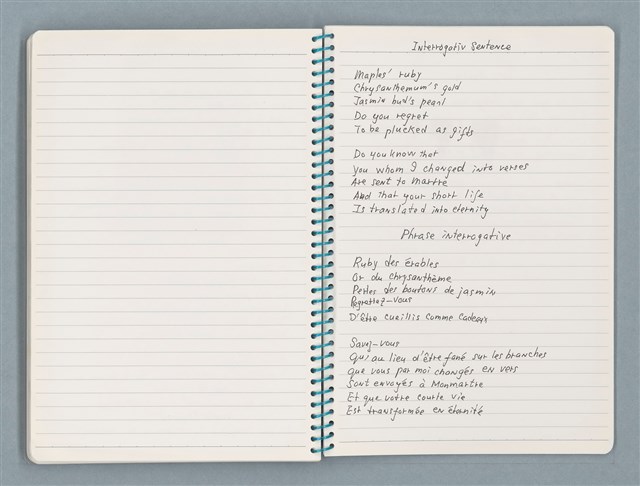 Interrogativ Sentence
Maples' ruby
Chrysanthemum's gold
Jasmin bud's pearl
Do you regret
To be plucked as gifts
Do you know that
you whom I changed into verses
Are sent to Martre
And that your short life
Is translated into eternity
Phrase interrogative
Ruby des érables
Or du chrysanthème
Perles des boutons de jasmin
Regrettez-vous
D'être cueillis comme cadeaux
Savez-vous
Qui au lieu d'être fané sur les branches
Que vous par moi changés en vers
Sont envoyés à Monmartre
Et que votre courte vie
Est transformée en éternité